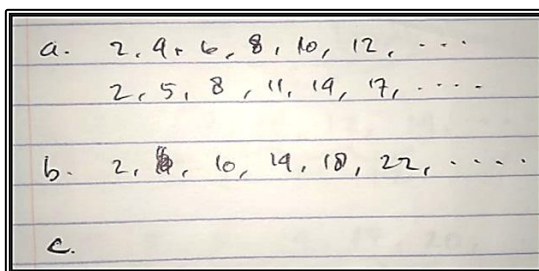 a. 2, 4, 6, 8, 10, 12, ...
2, 5, 8, 11, 14, 17, ....
b. 2, 10, 14, 18, 22, ....
c.